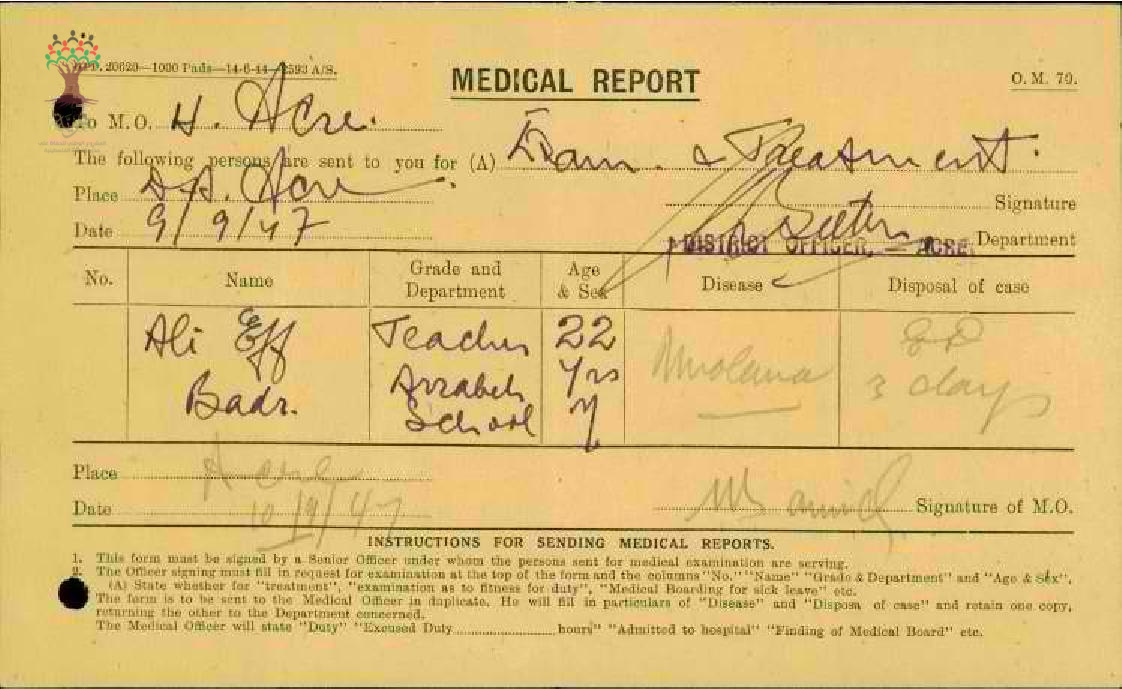 PD. 20620—1000 Pads—14-6-44—2593 A/S.
MEDICAL REPORT
O. M. 79.
To M.O. H. Acre.
The following persons are sent to you for (A) Exam. & Treatment.
Place D.A. Acre
Signature
Date 9/9/47
DISTRICT OFFICER, ACRE. Department
No. Name Grade and Department Age & Sex Disease Disposal of case
Ali Eff Teacher 22
Badr. Arrabeh yrs 3 days
School
Place Acre
Date 10/9/47 Signature of M.O.
INSTRUCTIONS FOR SENDING MEDICAL REPORTS.
1. This form must be signed by a Senior Officer under whom the persons sent for medical examination are serving.
2. The Officer signing must fill in request for examination at the top of the form and the columns "No." "Name" "Grade & Department" and "Age & Sex",
(A) State whether for "treatment", "examination as to fitness for duty", "Medical Boarding for sick leave" etc.
The form is to be sent to the Medical Officer in duplicate. He will fill in particulars of "Disease" and "Disposa of case" and retain one copy,
returning the other to the Department concerned.
The Medical Officer will state "Duty" "Excused Duty hours" "Admitted to hospital" "Finding of Medical Board" etc.